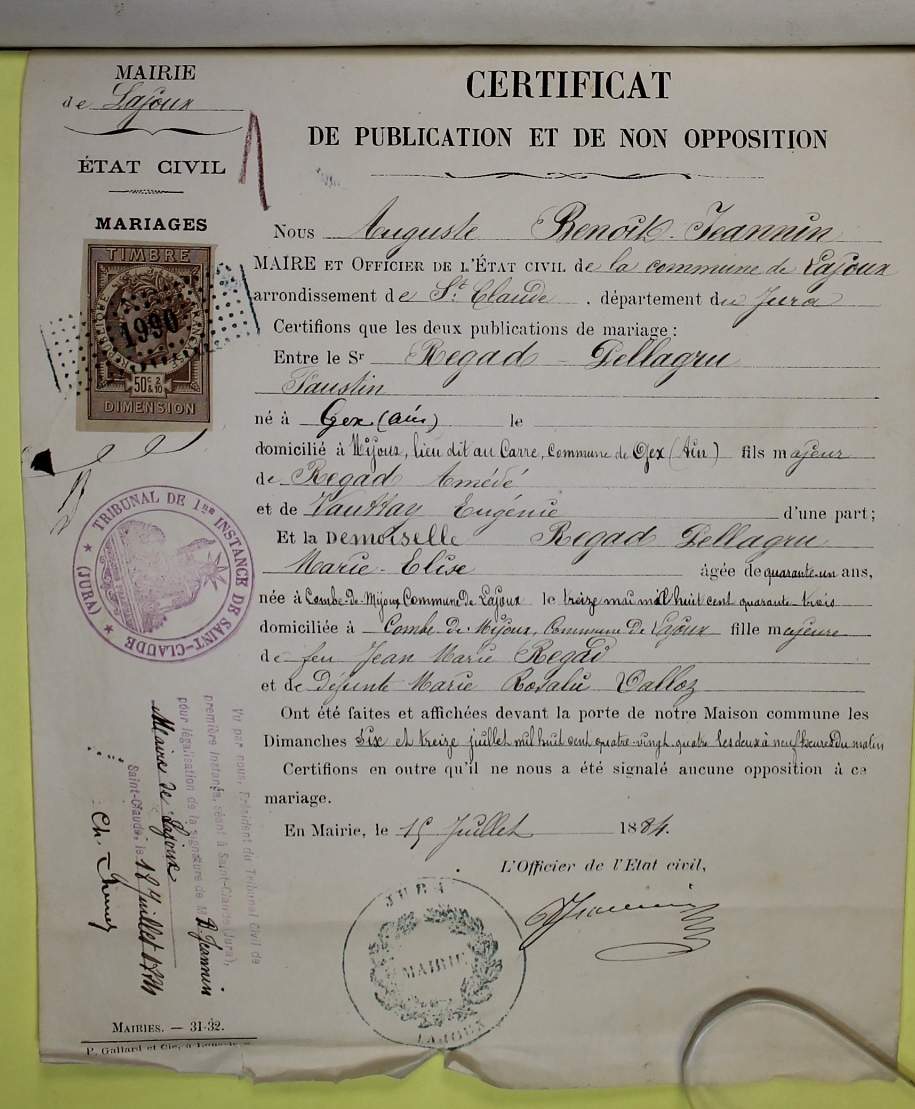 MAIRIE
de Lajoux
ÉTAT CIVIL
MARIAGES
TIMBRE
RÉPUBLIQUE FRANÇAISE
1990
50c 2/10
DIMENSION
TRIBUNAL DE 1re INSTANCE DE SAINT-CLAUDE
★ (JURA) ★
CERTIFICAT
DE PUBLICATION ET DE NON OPPOSITION
Nous Auguste Benoit-Jeannin
MAIRE ET OFFICIER DE L'ÉTAT CIVIL de la commune de Lajoux
arrondissement de St. Claude . département du Jura
Certifions que les deux publications de mariage :
Entre le Sr Regad-Pellagru
Faustin
né à Gex (ain) le
domicilié à Mijoux, lieu dit au Carre, Commune de Gex (Ain) fils majeur
de Regad Amédé
et de Eugénie d'une part ;
Et la Demoiselle Regad Pellagru
Marie-Elise âgée de quarante-un ans,
née à Combe-De-Mijoux Commune De Lajoux le treize mai mil huit cent quarante-trois
domiciliée à Combe-De-Mijoux, Commune De Lajoux fille majeure
de feu Jean Marie Regad
et de Défunte Marie Rosalie Valloz
Ont été faites et affichées devant la porte de notre Maison commune les
Dimanches Six et treize juillet mil huit cent quatre-vingt-quatre les deux à neuf heures du matin
Certifions en outre qu'il ne nous a été signalé aucune opposition à ce
mariage.
En Mairie, le 15 Juillet 1884.
L'Officier de l'Etat civil,
Jeannin
JURA
MAIRIE
LAJOUX
Vu par nous, Président du Tribunal Civil de
première Instance, séant à Saint-Claude (Jura),
pour légalisation de la signature de M B. Jeannin
Maire de Lajoux
Saint-Claude, le 18 Juillet 1884
MAIRIES. — 31-32.
P. Gallard et Cie, à